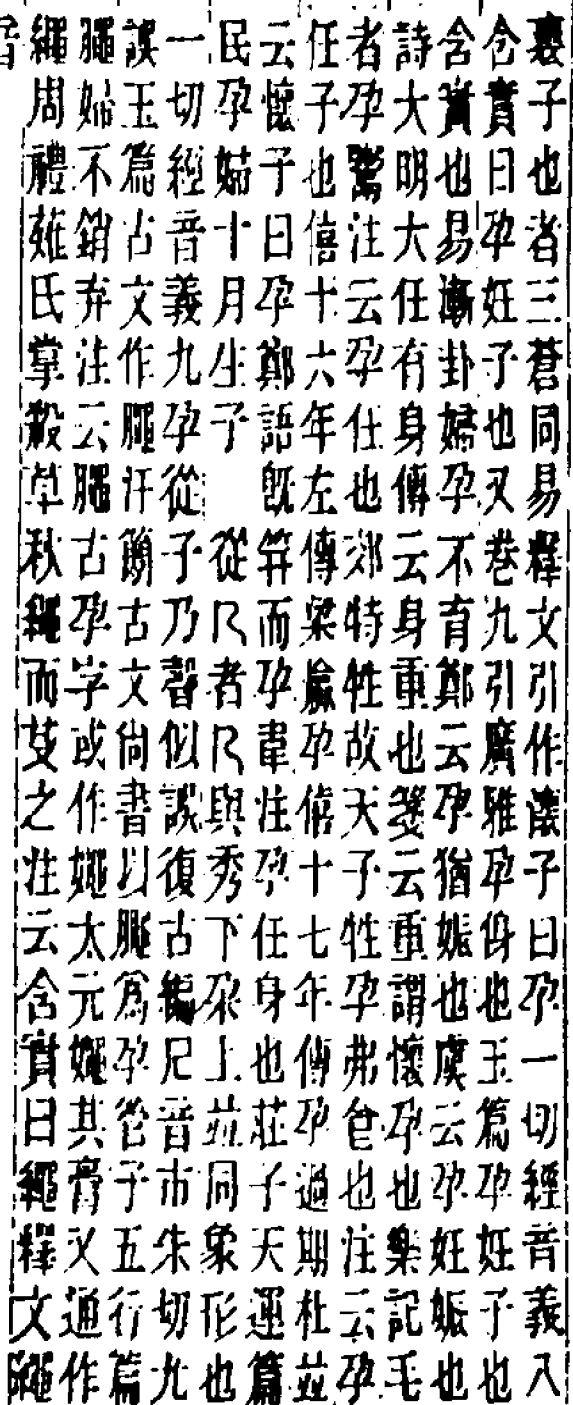 褱子也者三蒼同易釋文引作懷子曰孕一切經音義八
含實曰孕妊子也又卷九引廣雅孕㑗也玉篇孕妊子也
含實也易漸卦婦孕不育鄭云孕猶娠也虞云孕妊娠也
詩大明大任有身傳云身重也箋云重謂懷孕也樂記毛
者孕鬻注云孕任也郊特牲故天子牲孕弗食也注云孕
任子也僖十六年左傳梁嬴孕僖十七年傳孕過期杜並
云懷子曰孕鄭語既笄而孕韋注孕任身也莊子天運篇
民孕婦十月生子 從几者几與秀下朶上並同象形也
一切經音義九孕從子乃聲似誤復古編尺音市朱切九
誤玉篇古文作汗簡古文尚書以爲孕管子五行篇
婦不銷弃注云古孕字或作太元其膏又通作
繩周禮薙氏掌殺草秋繩而芟之注云含實曰繩釋文